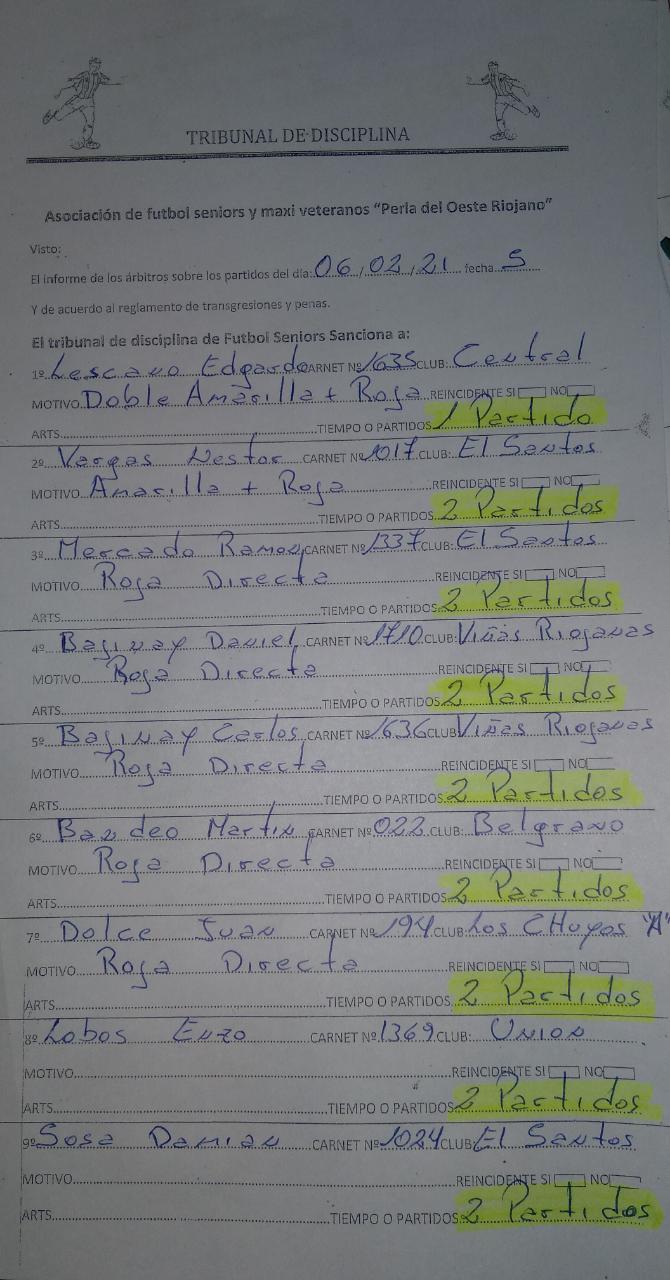 TRIBUNAL DE DISCIPLINA
Asociación de futbol seniors y maxi veteranos "Perla del Oeste Riojano"
Visto:
El informe de los árbitros sobre los partidos del día: 06/02/21 fecha 5
Y de acuerdo al reglamento de transgresiones y penas.
El tribunal de disciplina de Futbol Seniors Sanciona a:
1º Lescano Edgardo CARNET Nº 1635 CLUB: Central
MOTIVO Doble Amarilla + Roja REINCIDENTE SI NO
ARTS. TIEMPO O PARTIDOS 1 Partido
2º Vargas Nestor CARNET Nº 1017 CLUB: El Santos
MOTIVO Amarilla + Roja REINCIDENTE SI NO
ARTS. TIEMPO O PARTIDOS 2 Partidos
3º Mercado Ramon CARNET Nº 1337 CLUB: El Santos
MOTIVO Roja Directa REINCIDENTE SI NO
ARTS. TIEMPO O PARTIDOS 2 Partidos
4º Daniel CARNET Nº 1710 CLUB: Viñas Riojanas
MOTIVO Roja Directa REINCIDENTE SI NO
ARTS. TIEMPO O PARTIDOS 2 Partidos
5º Carlos CARNET Nº 1636 CLUB Viñas Riojanas
MOTIVO Roja Directa REINCIDENTE SI NO
ARTS. TIEMPO O PARTIDOS 2 Partidos
6º Martin CARNET Nº 022 CLUB: Belgrano
MOTIVO Roja Directa REINCIDENTE SI NO
ARTS. TIEMPO O PARTIDOS 2 Partidos
7º Dolce Juan CARNET Nº 194 CLUB: Los CHuyos "A"
MOTIVO Roja Directa REINCIDENTE SI NO
ARTS. TIEMPO O PARTIDOS 2 Partidos
8º Lobos Enzo CARNET Nº 1369 CLUB: Union
MOTIVO REINCIDENTE SI NO
ARTS. TIEMPO O PARTIDOS 2 Partidos
9º Sosa Damian CARNET Nº 1024 CLUB: El Santos
MOTIVO REINCIDENTE SI NO
ARTS. TIEMPO O PARTIDOS 2 Partidos